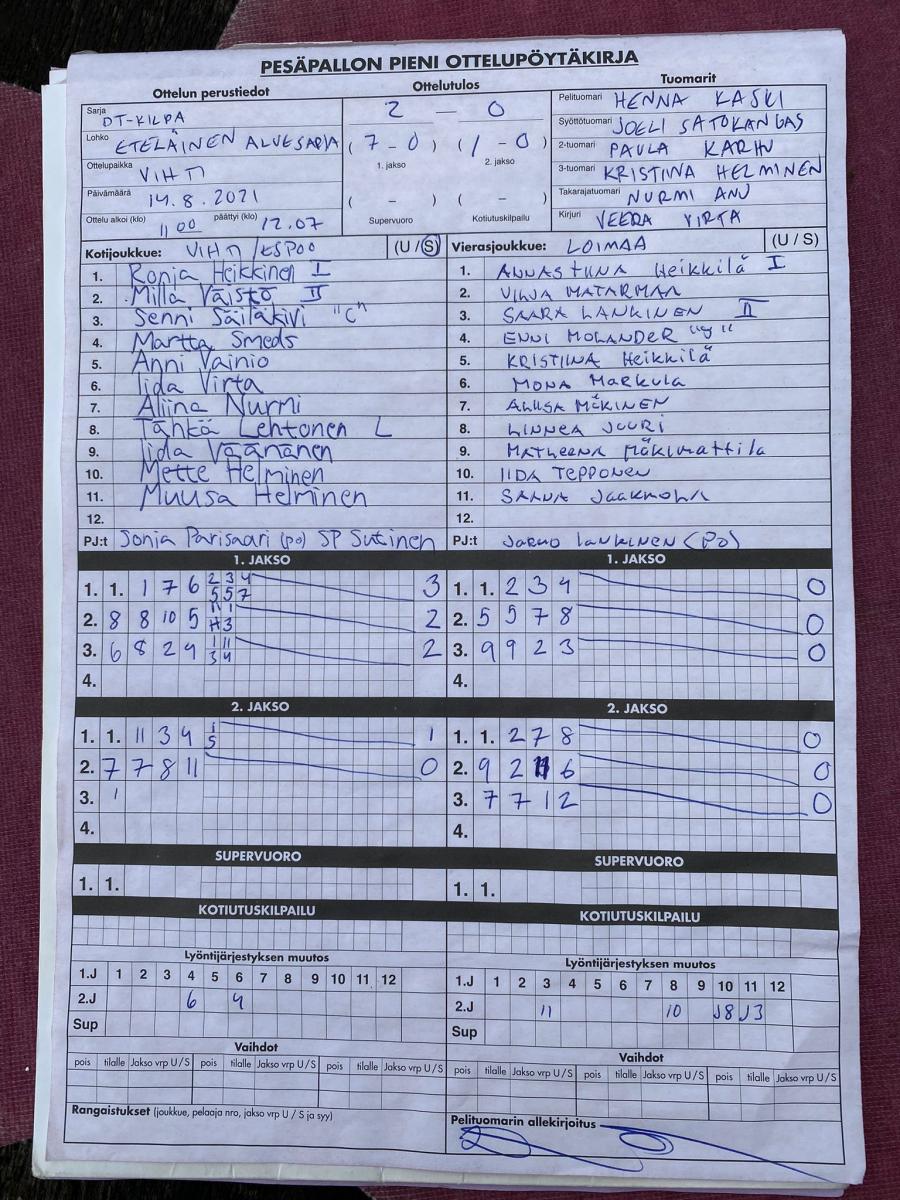 PESÄPALLON PIENI OTTELUPÖYTÄKIRJA
Ottelun perustiedot
Sarja DT-KILPA
Lohko ETELÄINEN ALUESARJA
Ottelupaikka VIHTI
Päivämäärä 14.8.2021
Ottelu alkoi (klo) 11 00 päättyi (klo) 12.07
Ottelutulos
2 — 0
(7-0) (1-0)
1. jakso 2. jakso
( - ) ( - )
Supervuoro Kotiutuskilpailu
Tuomarit
Pelituomari HENNA KASKI
Syöttötuomari JOELI SATOKANGAS
2-tuomari PAULA KARHU
3-tuomari KRISTIINA HELMINEN
Takarajatuomari NURMI ANU
Kirjuri VEERA VIRTA
Kotijoukkue: VIHTI/ESPOO (U/S)
1. Ronja Heikkinen I
2. Milla Väistö II
3. Senni Säiläkivi "C"
4. Martta Smeds
5. Anni Vainio
6. Iida Virta
7. Aliina Nurmi
8. Tähkä Lehtonen L
9. Iida Väänänen
10. Mette Helminen
11. Muusa Helminen
12.
PJ:t Sonja Parisaari (po) SP Sutinen
Vierasjoukkue: LOIMAA (U/S)
1. ANNASTIINA Heikkilä I
2. VILJA MATARMAA
3. SAARA LANKINEN II
4. ENNI MOLANDER
5. KRISTIINA Heikkilä
6. MONA MARKULA
7. MÄKINEN
8. LINNEA JUURI
9. MATLEENA Mäkimattila
10. IIDA TEPPONEN
11. SAANA
12.
PJ:t JARMO LANKINEN (PO)
1. JAKSO
1. 1. 1 7 6 2 3 4 3
5 5 7
2. 8 8 10 5 11 1 2
3. 6 8 2 9 1 11 2
3 4
4.
1. JAKSO
1. 1. 2 3 4 0
2. 5 5 7 8 0
3. 9 9 2 3 0
4.
2. JAKSO
1. 1. 11 3 4 1 1
5
2. 7 7 8 11 0
3.
4.
2. JAKSO
1. 1. 2 7 8 0
2. 9 2 6 0
3. 7 7 1 2 0
4.
SUPERVUORO
1. 1.
SUPERVUORO
1. 1.
KOTIUTUSKILPAILU
KOTIUTUSKILPAILU
Lyöntijärjestyksen muutos
1.J 1 2 3 4 5 6 7 8 9 10 11 12
2.J 6 4
Sup
Lyöntijärjestyksen muutos
1.J 1 2 3 4 5 6 7 8 9 10 11 12
2.J 11 10 J8 J3
Sup
Vaihdot
pois tilalle Jakso vrp U/S pois tilalle Jakso vrp U/S pois tilalle Jakso vrp U/S
Vaihdot
pois tilalle Jakso vrp U/S pois tilalle Jakso vrp U/S pois tilalle Jakso vrp U/S
Rangaistukset (joukkue, pelaaja nro, jakso vrp U / S ja syy)
Pelituomarin allekirjoitus